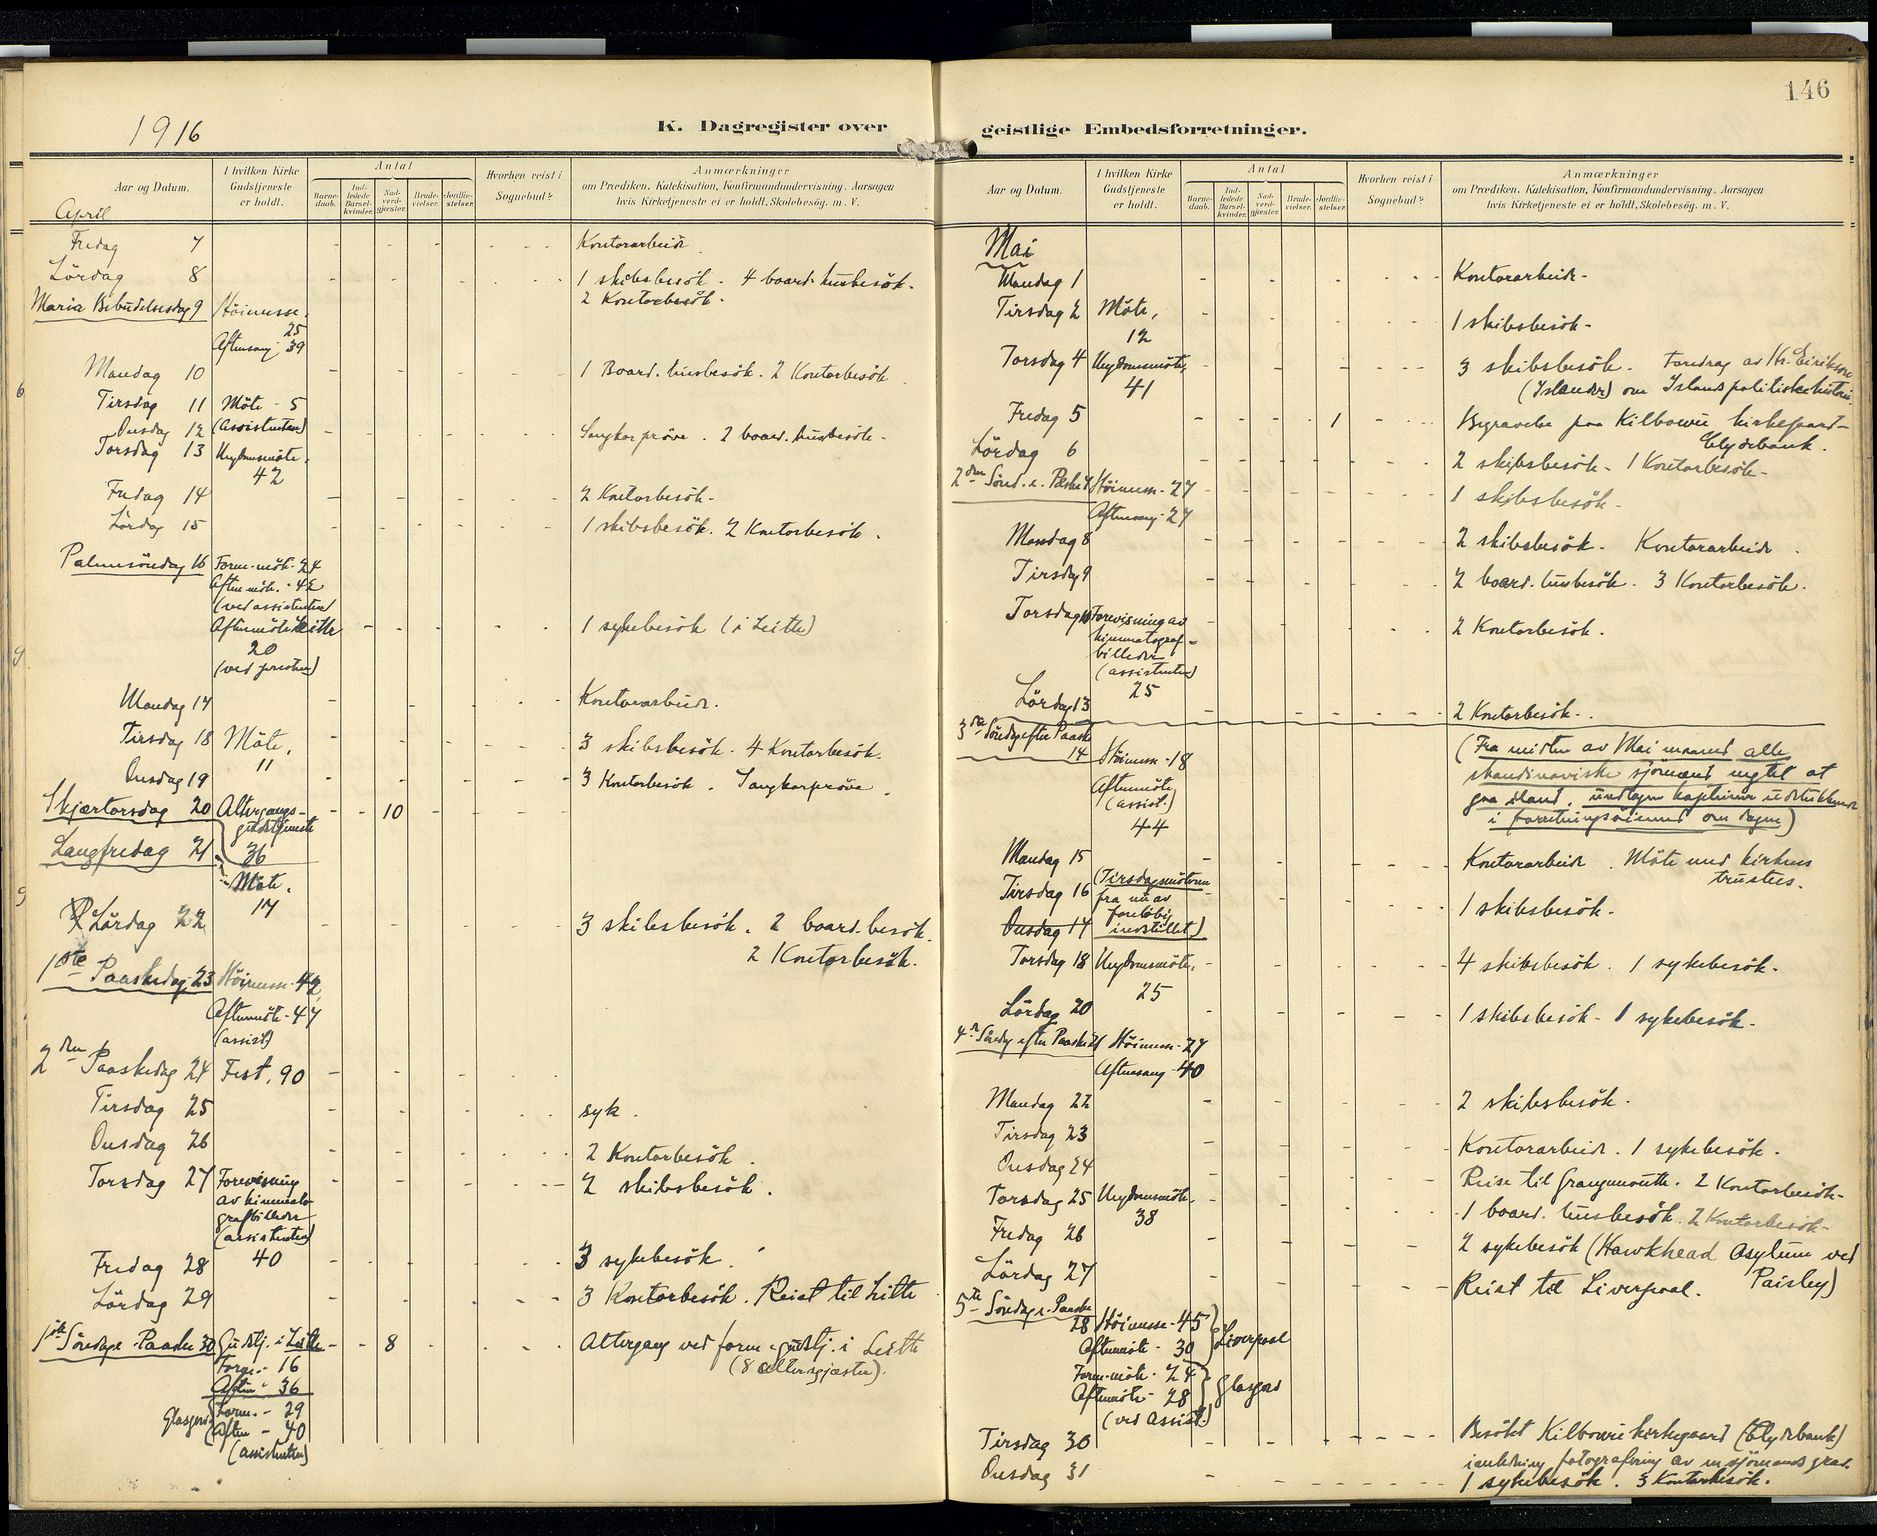 146
1916
K. Dagregister over geistlige Embedsforretninger.
Aar og Datum.
I hvilken Kirke Gudstjeneste er holdt.
Antal
Barnedaab.
Indledede Barselkvinder.
Nadverdgjæster.
Brudevielser.
Jordfæstelser.
Hvorhen reist i Sognebud?
Anmærkninger
om Prædiken, Katekisation, Konfirmandundervisning. Aarsagen
hvis Kirketjeneste ei er holdt, Skolebesøg. m. V.
April
Fredag 7 Kontorarbeide
Lördag 8 1 skibsbesök. 4 board. husbesök.
2 Kontorbesök.
Maria Bebudelsesdag 9 Höimesse. 25
Aftensang 39
Mandag 10 1 Board. husbesök. 2 Kontorbesök
Tirsdag 11 Möte 5
(Assistenten)
Onsdag 12 Sangkorpröve. 2 board. husbesök
Torsdag 13 Ungdomsmöte.
42
Fredag 14 2 Kontorbesök.
Lördag 15 1 skibsbesök. 2 Kontorbesök.
Palmesöndag 16 Form. möt. 24
Aftenmöt. 42
(ved assistenten)
Aftenmöte Leith 1 sykebesök (i Leith)
20
(ved presten)
Mandag 17 Kontorarbeide.
Tirsdag 18 Möte, 3 skibsbesök. 4 Kontorbesök.
11
Onsdag 19 3 Kontorbesök. Sangkorpröve.
Skjærtorsdag 20 Altergangs- 10
gudstjeneste
36
Langfredag 21
Möte.
17
Lördag 22 3 skibsbesök. 2 board. besök.
2 Kontorbesök.
1ste Paaskedag 23 Höimesse 42
Aftenmöte 47
(assist)
2den Paaskedag 24 Fest, 90
Tirsdag 25 syk.
Onsdag 26 2 Kontorbesök.
Torsdag 27 Forevisning 2 skibsbesök.
av kinemato-
grafbilleder
(assistenten)
40
Fredag 28 3 sykebesök.
Lördag 29 3 Kontorbesök. Reist til Leith
1ste Söndag e. Paaske 30 Gudstj. i Leith 8 Altergang ved form. gudstj. i Leith
Form. 16 (8 altergjæster).
Aften 36
Glasgow Form. - 29
Aften - 40
(assistenten)
Aar og Datum.
I hvilken Kirke Gudstjeneste er holdt.
Antal
Barnedaab.
Indledede Barselkvinder.
Nadverdgjæster.
Brudevielser.
Jordfæstelser.
Hvorhen reist i Sognebud?
Anmærkninger
om Prædiken, Katekisation, Konfirmandundervisning. Aarsagen
hvis Kirketjeneste ei er holdt, Skolebesøg. m. V.
Mai
Mandag 1 Kontorarbeide
Tirsdag 2 Möte, 1 skibsbesök
12
Torsdag 4 Ungdomsmöte, 3 skibsbesök. Foredrag av Hr. Eirikson
41 (Islænder) om Islands politiske historie.
Fredag 5 1 Begravelse paa Kilbowie kirkegaard
Clydebank.
Lördag 6 2 skibsbesök - 1 Kontorbesök
2den Sönd. e. Paaske 7 Höimesse 27 1 skibsbesök.
Aftensang 27
Mandag 8 2 skibsbesök. Kontorarbeide.
Tirsdag 9 2 board. husbesök. 3 Kontorbesök.
Torsdag Forevisning av 2 Kontorbesök.
kinematograf-
billeder
(assistenten)
25
Lördag 13 2 Kontorbesök.
3die Söndag efter Paaske (Fra midten av Mai maaned alle
14 Höimesse 18 skandinaviske sjömænd negtet at
Aftenmöte gaa iland, undtagen kapteiner
(assist.) i forretningsöiemed om dagen)
44
Mandag 15 Kontorarbeide. Möte med kirkens
trustees.
Tirsdag 16 (Tirsdagsmöterne 1 skibsbesök.
fra nu av
Onsdag 17 foreløbig
indstillet)
Torsdag 18 Ungdomsmöte, 4 skibsbesök. 1 sykebesök.
25
Lördag 20 1 skibsbesök - 1 sykebesök.
4de Söndag efter Paaske 21 Höimesse 27
Aftensang 40
Mandag 22 2 skibsbesök.
Tirsdag 23 Kontorarbeide. 1 sykebesök.
Onsdag 24 Reise til Grangemouth. 2 Kontorbesök
Torsdag 25 Ungdomsmöte 1 board. husbesök. 2 Kontorbesök
38
Fredag 26 2 sykebesök (Hawkhead Asylum ved
Paisley)
Lördag 27 Reist til Liverpool.
5te Söndag e. Paaske
28 Höimesse 45
Aftenmöte 30 Liverpool
Form.möte 24
Aftenmöte 28 Glasgow
(ved Assist.)
Tirsdag 30 Besökt Kilbowie kirkegaard (Clydebank)
fotografering av en sjömands grav.
Onsdag 31 1 sykebesök. 3 Kontorbesök.